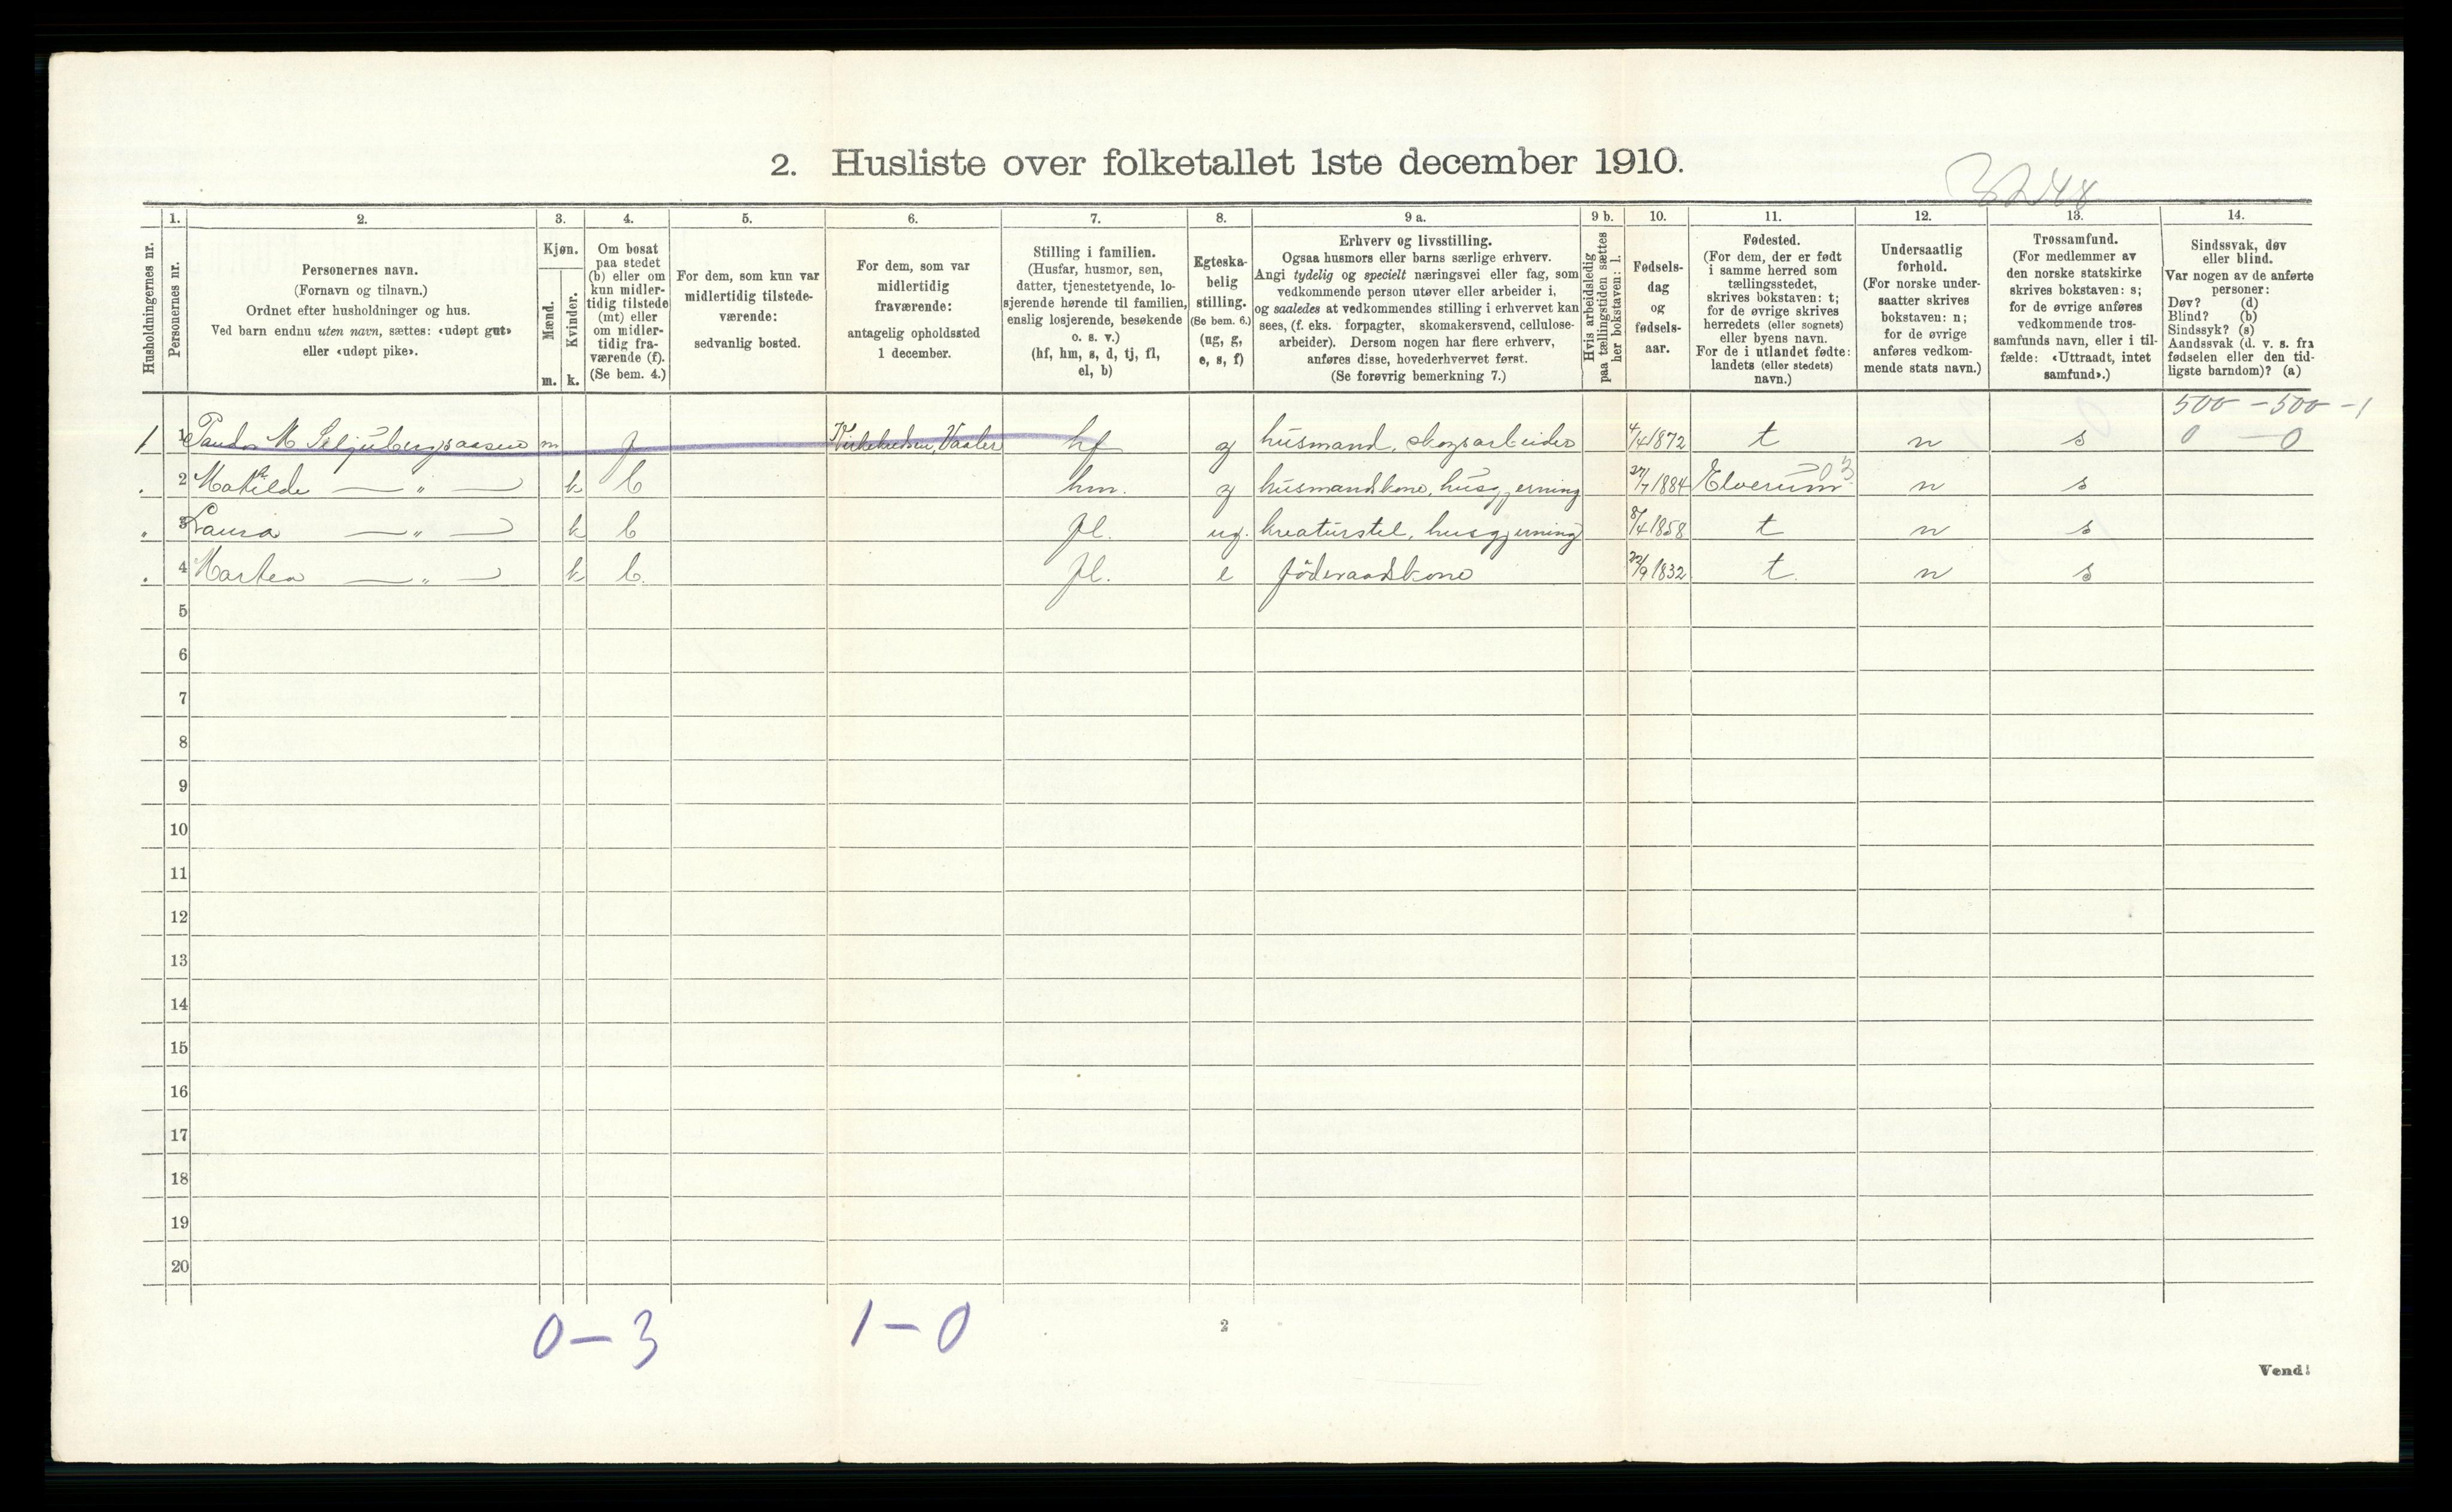 2. Husliste over folketallet 1ste december 1910.
3248
1. 2. 3. 4. 5. 6. 7. 8. 9 a. 9 b. 10. 11. 12. 13. 14.
Husholdningernes nr.
Personernes nr.
Personernes navn.
(Fornavn og tilnavn.)
Ordnet efter husholdninger og hus.
Ved barn endnu uten navn, sættes: «udøpt gut»
eller «udøpt pike».
Kjøn.
Mænd.
Kvinder.
m. k.
Om bosat
paa stedet
(b) eller om
kun midler-
tidig tilstede
(mt) eller
om midler-
tidig fra-
værende (f).
(Se bem. 4.)
For dem, som kun var
midlertidig tilstede-
værende:
sedvanlig bosted.
For dem, som var
midlertidig
fraværende:
antagelig opholdssted
1 december.
Stilling i familien.
(Husfar, husmor, søn,
datter, tjenestetyende, lo-
sjerende hørende til familien,
enslig losjerende, besøkende
o. s. v.)
(hf, hm, s, d, tj, fl,
el, b)
Egteska-
belig
stilling.
(Se bem. 6.)
(ug, g,
e, s, f)
Erhverv og livsstilling.
Ogsaa husmors eller barns særlige erhverv.
Angi tydelig og specielt næringsvei eller fag, som
vedkommende person utøver eller arbeider i,
og saaledes at vedkommendes stilling i erhvervet kan
sees, (f. eks. forpagter, skomakersvend, cellulose-
arbeider). Dersom nogen har flere erhverv,
anføres disse, hovederhvervet først.
(Se forøvrig bemerkning 7.)
Hvis arbeidsledig
paa tællingstiden sættes
her bokstaven: l.
Fødsels-
dag
og
fødsels-
aar.
Fødested.
(For dem, der er født
i samme herred som
tællingsstedet,
skrives bokstaven: t;
for de øvrige skrives
herredets (eller sognets)
eller byens navn.
For de i utlandet fødte:
landets (eller stedets)
navn.)
Undersaatlig
forhold.
(For norske under-
saatter skrives
bokstaven: n;
for de øvrige
anføres vedkom-
mende stats navn.)
Trossamfund.
(For medlemmer av
den norske statskirke
skrives bokstaven: s;
for de øvrige anføres
vedkommende tros-
samfunds navn, eller i til-
fælde: «Uttraadt, intet
samfund».)
Sindssvak, døv
eller blind.
Var nogen av de anførte
personer:
Døv? (d)
Blind? (b)
Sindssyk? (s)
Aandssvak (d. v. s. fra
fødselen eller den tid-
ligste barndom)? (a)
500 - 500 - 1
1 1 M Seljubergsaasen m f Kirkekredsen, Vaaler hf g husmand, skogsarbeider 4/4 1872 t n s 0 - 0
03
. 2 Matilde — „ — k b hm. g husmandskone, husgjerning 27/7 1884 Elverum n s
. 3 Laura — „ — k b fl. ug. kreaturstel, husgjerning 8/4 1858 t n s
. 4 Martea — „ — k b. fl. e föderaadskone 22/9 1832 t. n s
5
6
7
8
9
10
11
12
13
14
15
16
17
18
19
20
0 - 3 1 - 0
2
Vend!